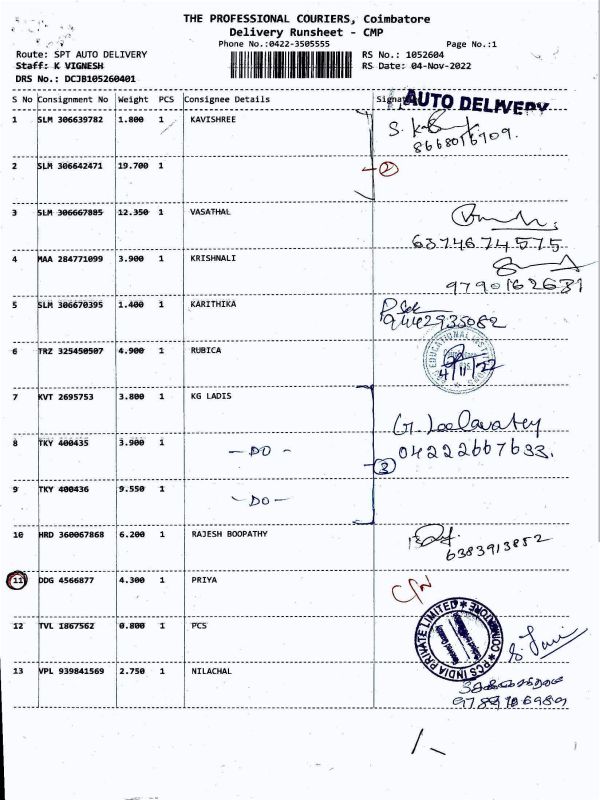 THE PROFESSIONAL COURIERS, Coimbatore
Delivery Runsheet - CMP
Phone No.:0422-3505555 Page No.:1
Route: SPT AUTO DELIVERY RS No.: 1052604
Staff: K VIGNESH RS Date: 04-Nov-2022
DRS No.: DCJB105260401
AUTO DELIVERY
S No Consignment No Weight PCS Consignee Details
1 SLM 306639782 1.800 1 KAVISHREE
8668016909.
2 SLM 306642471 19.700 1 2
3 SLM 306667885 12.350 1 VASATHAL
6374674575
4 MAA 284771099 3.900 1 KRISHNALI
9790162631
5 SLM 306670395 1.400 1 KARITHIKA
9442935082
6 TRZ 325450507 4.900 1 RUBICA
EDUCATIONAL
4/11/22
7 KVT 2695753 3.800 1 KG LADIS
G. Leelavathy
8 TKY 400435 3.900 1 - DO -
04222667633.
3
9 TKY 400436 9.550 1 - DO -
10 HRD 360067868 6.200 1 RAJESH BOOPATHY
6383913852
11 DDG 4566877 4.300 1 PRIYA
12 TVL 1867562 0.800 1 PCS
PCS INDIA PRIVATE LIMITED
13 VPL 939841569 2.750 1 NILACHAL